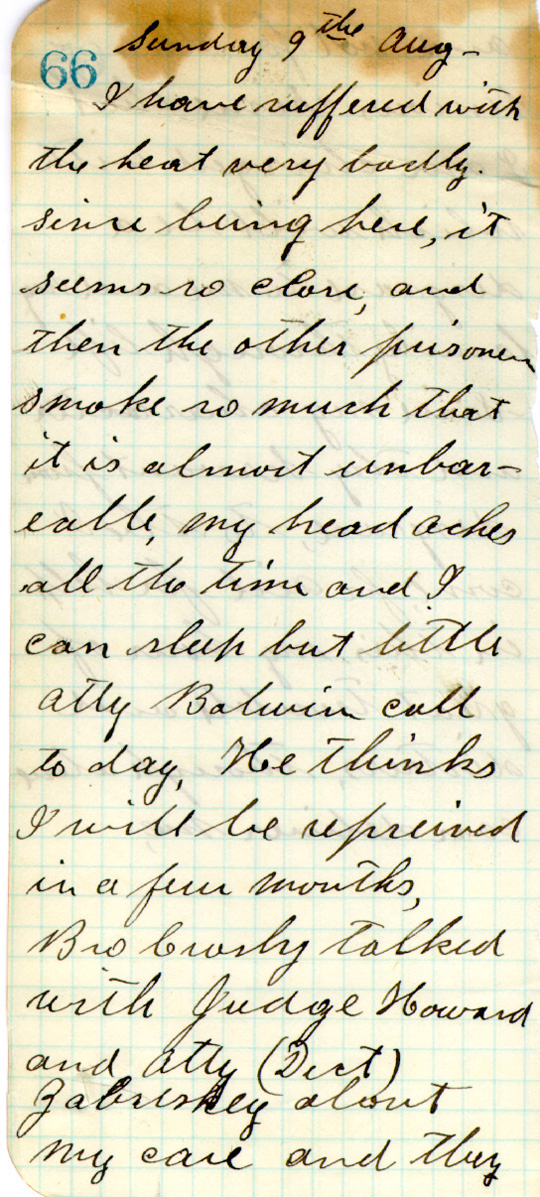 66
Sunday 9the Aug-
I have suffered with
the heat very badly.
since being here, it
seems so close, and
then the other prisoners
smoke so much that
it is almost unbar-
eable, my head aches
all the time and I
can sleep but little
Atty Balwin call
to day, He thinks
I will be repreived
in a few months,
Bro Crosby talked
with Judge Howard
and Atty (Dict)
Zabriskey about
my case and they